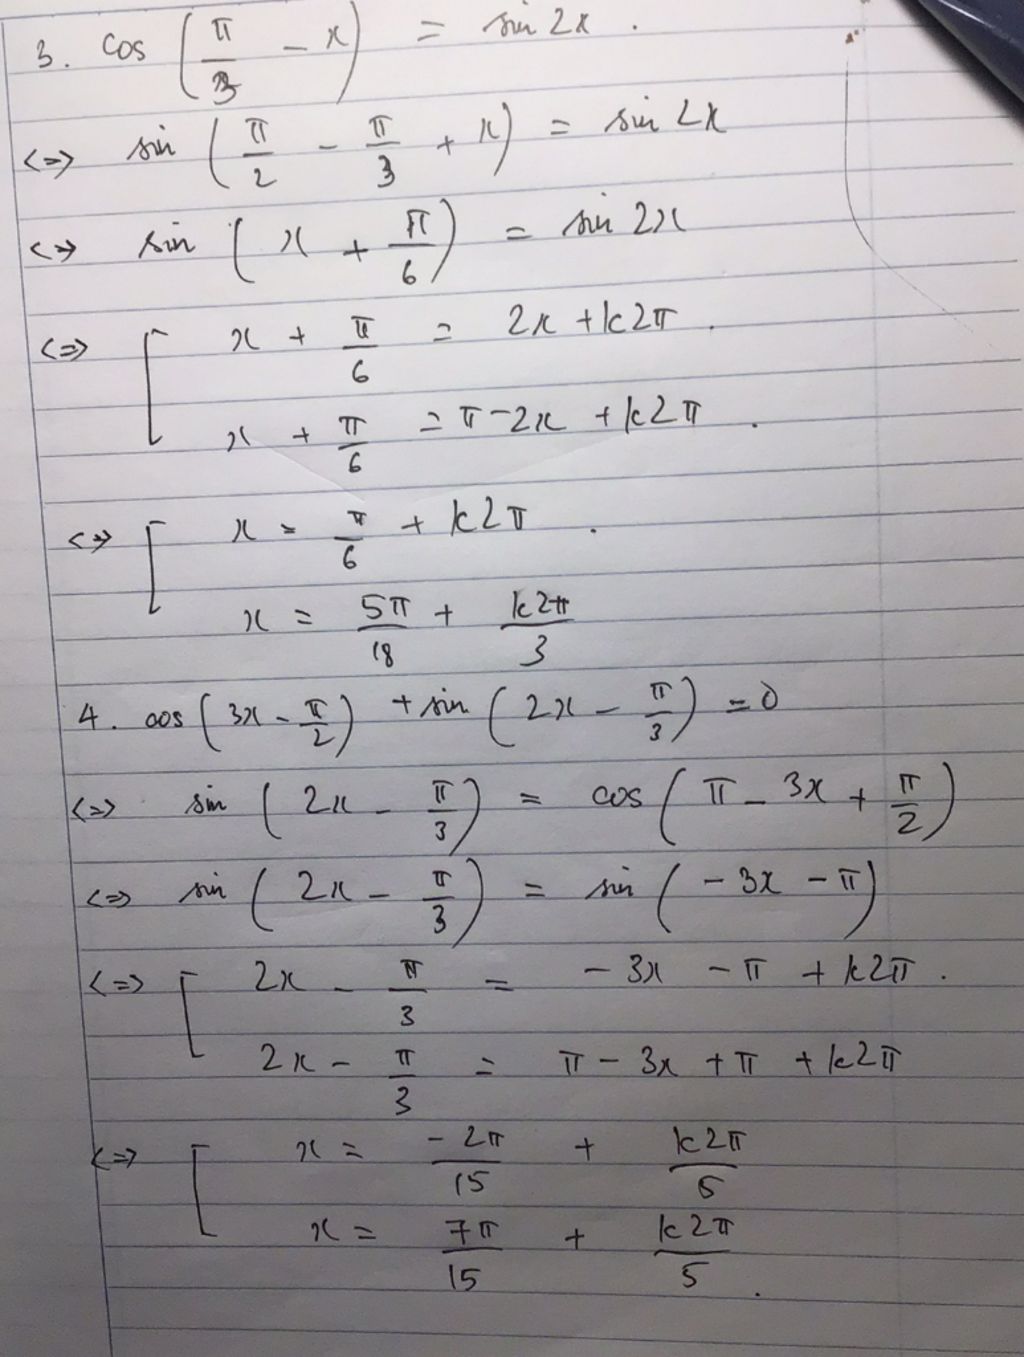 3. cos (π/3 - x) = sin 2x.
<=> sin (π/2 - π/3 + x) = sin 2x
<=> sin (x + π/6) = sin 2x
<=> [ x + π/6 = 2x + k2π.
x + π/6 = π - 2x + k2π.
<=> [ x = π/6 + k2π.
x = 5π/18 + k2π/3
4. cos (3x - π/2) + sin (2x - π/3) = 0
<=> sin (2x - π/3) = cos (π - 3x + π/2)
<=> sin (2x - π/3) = sin (-3x - π)
<=> [ 2x - π/3 = -3x - π + k2π.
2x - π/3 = π - 3x + π + k2π
<=> [ x = -2π/15 + k2π/5
x = 7π/15 + k2π/5.